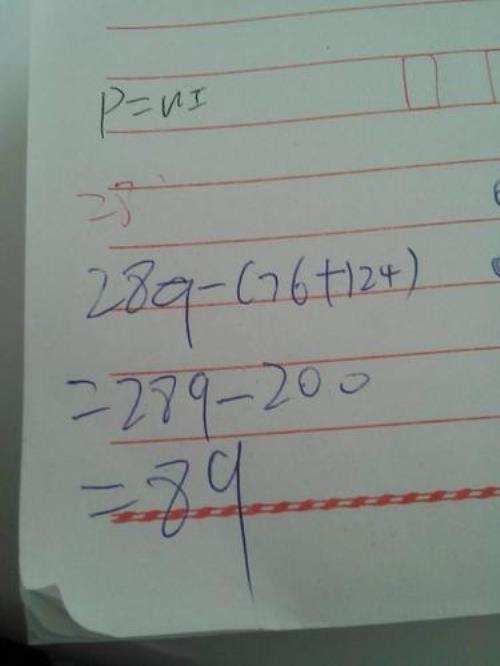 P=UI
=8
289-(76+124)
=289-200
=89